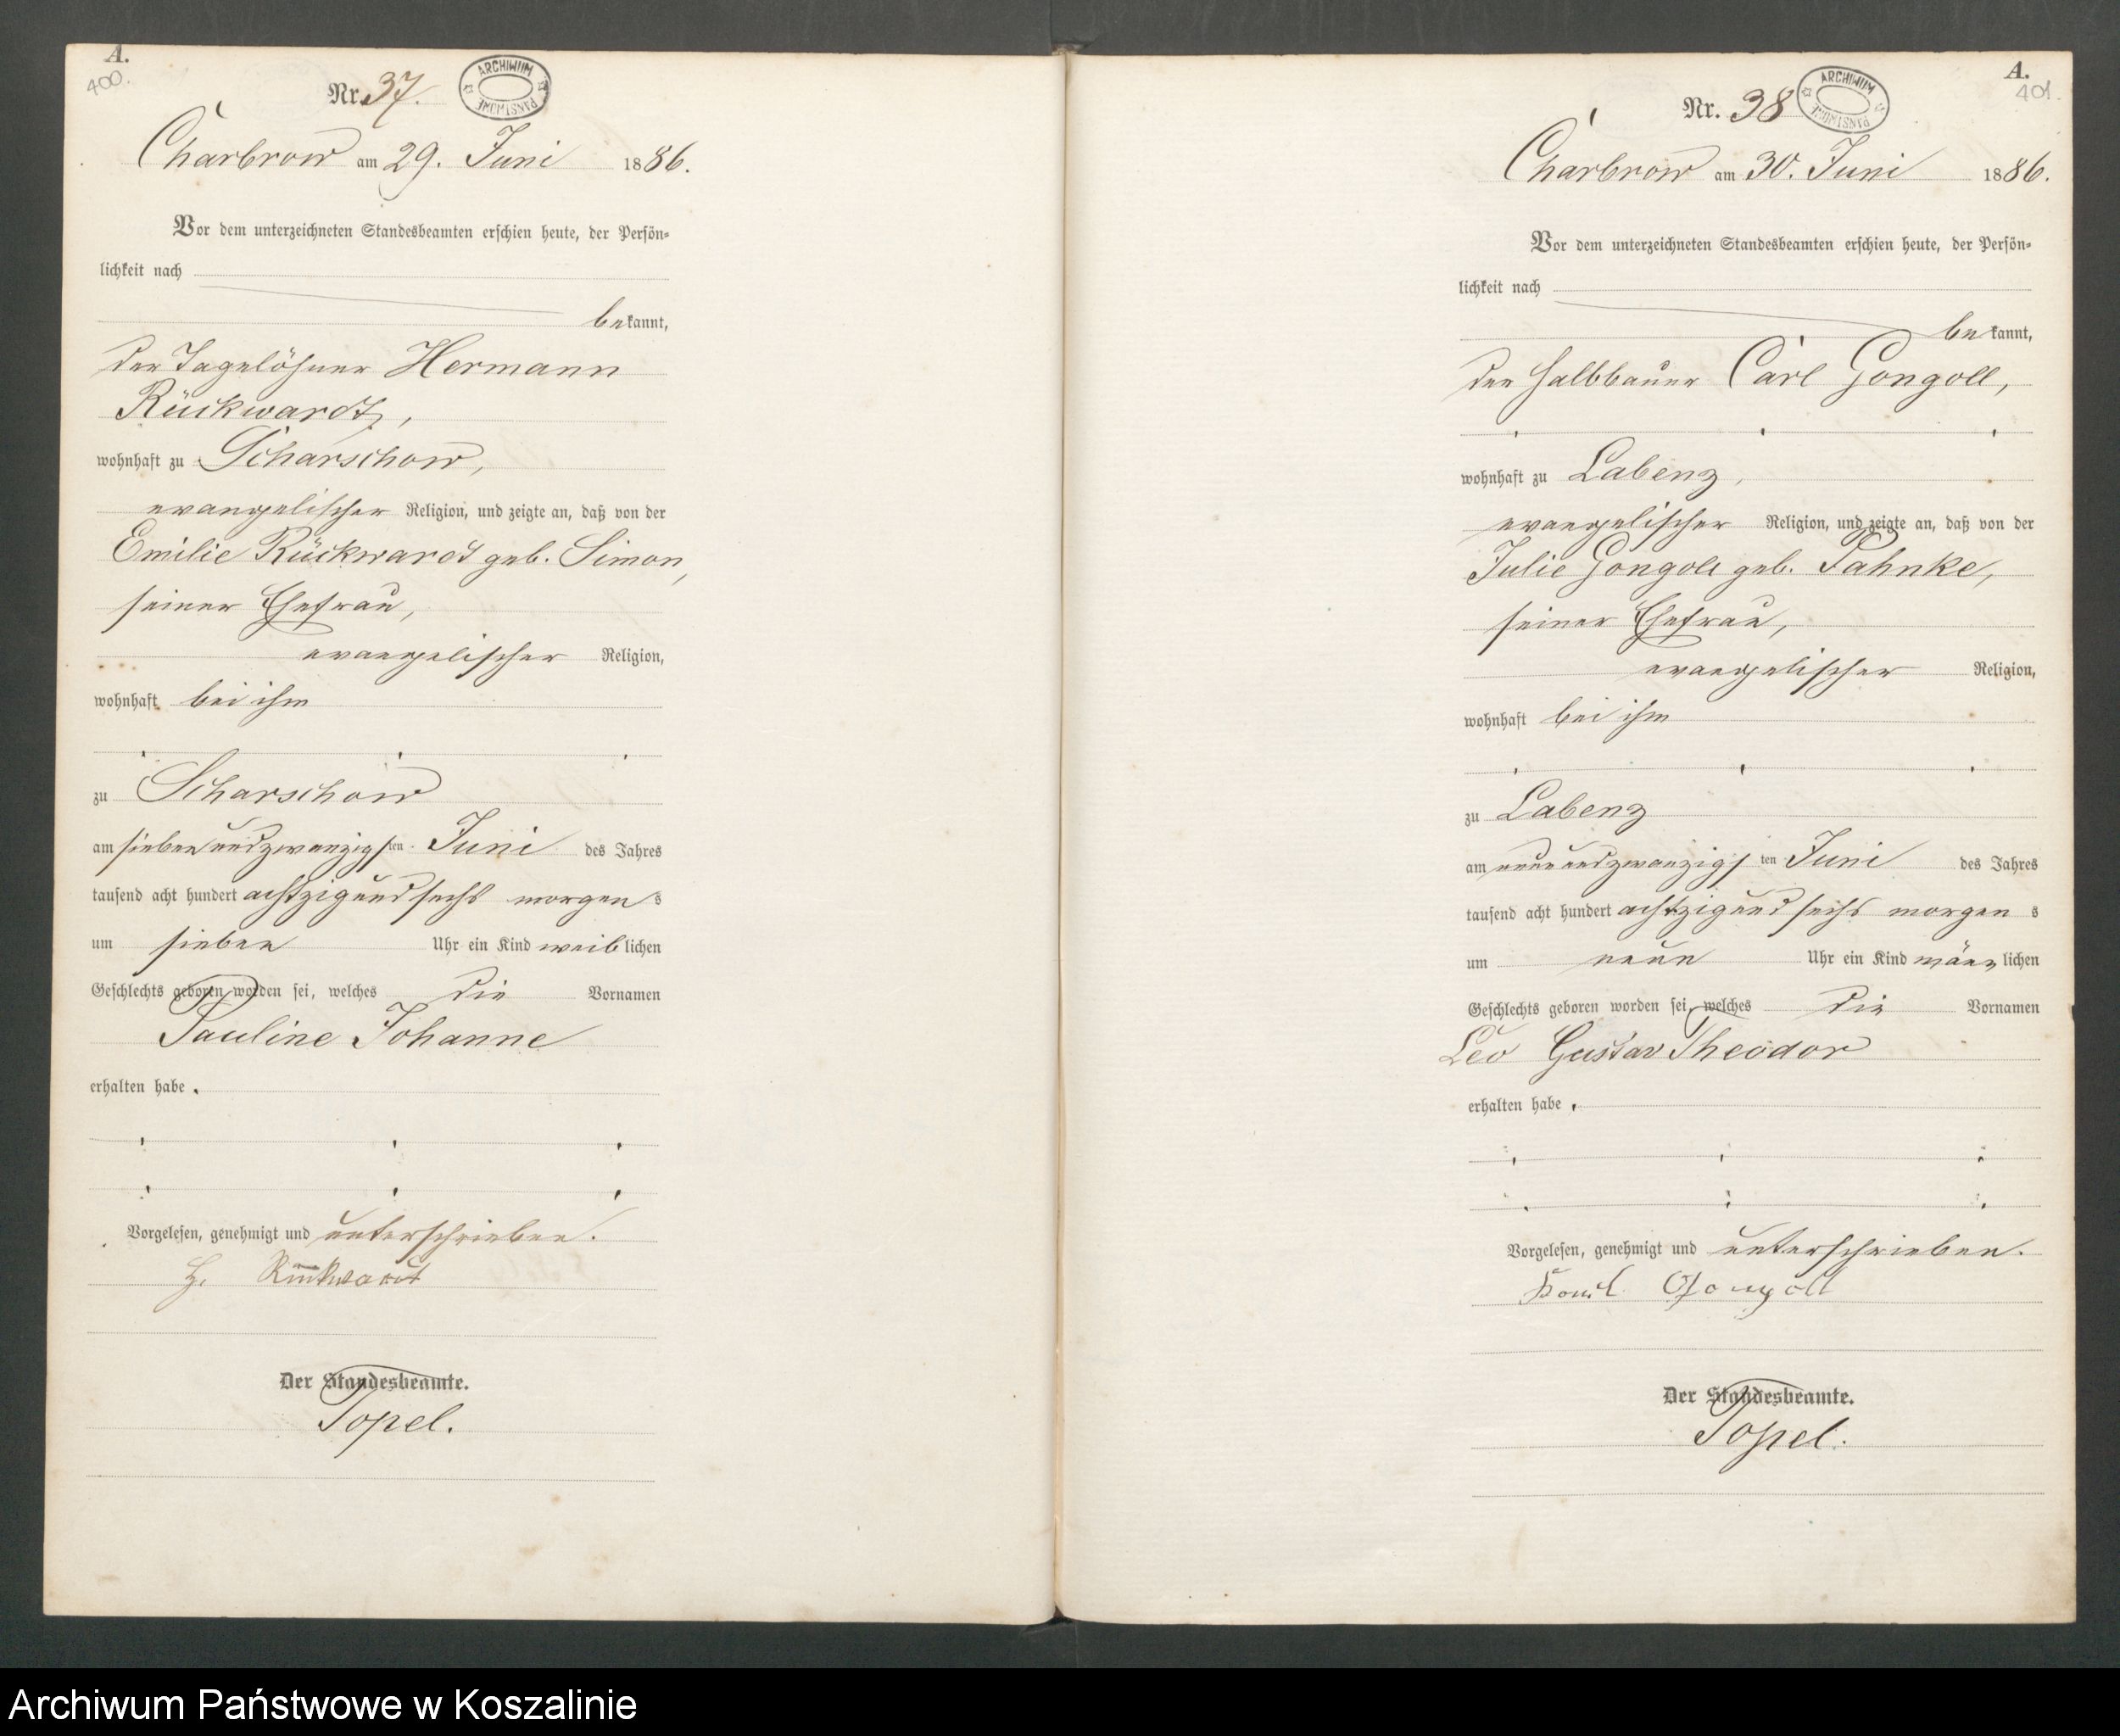 A.
400.
Nr. 37.
ARCHIWUM PAŃSTWOWE
Charbrow am 29. Juni 1886.
Vor dem unterzeichneten Standesbeamten erschien heute, der Persön-
lichkeit nach
bekannt,
der Tagelöhner Hermann
Rückwardt,
wohnhaft zu Scharschow,
evangelischer Religion, und zeigte an, daß von der
Emilie Rückwardt geb. Simon,
seiner Ehefrau,
evangelischer Religion,
wohnhaft bei ihm
zu Scharschow
am siebenundzwanzigsten Juni des Jahres
tausend acht hundert achtzig und sechs morgens
um sieben Uhr ein Kind weiblichen
Geschlechts geboren worden sei, welches die Vornamen
Pauline Johanne
erhalten habe.
Vorgelesen, genehmigt und unterschrieben.
H. Rückwardt
Der Standesbeamte.
Topel.
A.
401.
Nr. 38
ARCHIWUM PAŃSTWOWE
Charbrow am 30. Juni 1886.
Vor dem unterzeichneten Standesbeamten erschien heute, der Persön-
lichkeit nach
bekannt,
der Halbbauer Carl Gongoll,
wohnhaft zu Labenz,
evangelischer Religion, und zeigte an, daß von der
Julie Gongoll geb. Pahnke,
seiner Ehefrau,
evangelischer Religion,
wohnhaft bei ihm
zu Labenz
am neunundzwanzigsten Juni des Jahres
tausend acht hundert achtzig und sechs morgens
um neun Uhr ein Kind männlichen
Geschlechts geboren worden sei, welches die Vornamen
Leo Gustav Theodor
erhalten habe.
Vorgelesen, genehmigt und unterschrieben.
Gongoll
Der Standesbeamte.
Topel.
Archiwum Państwowe w Koszalinie